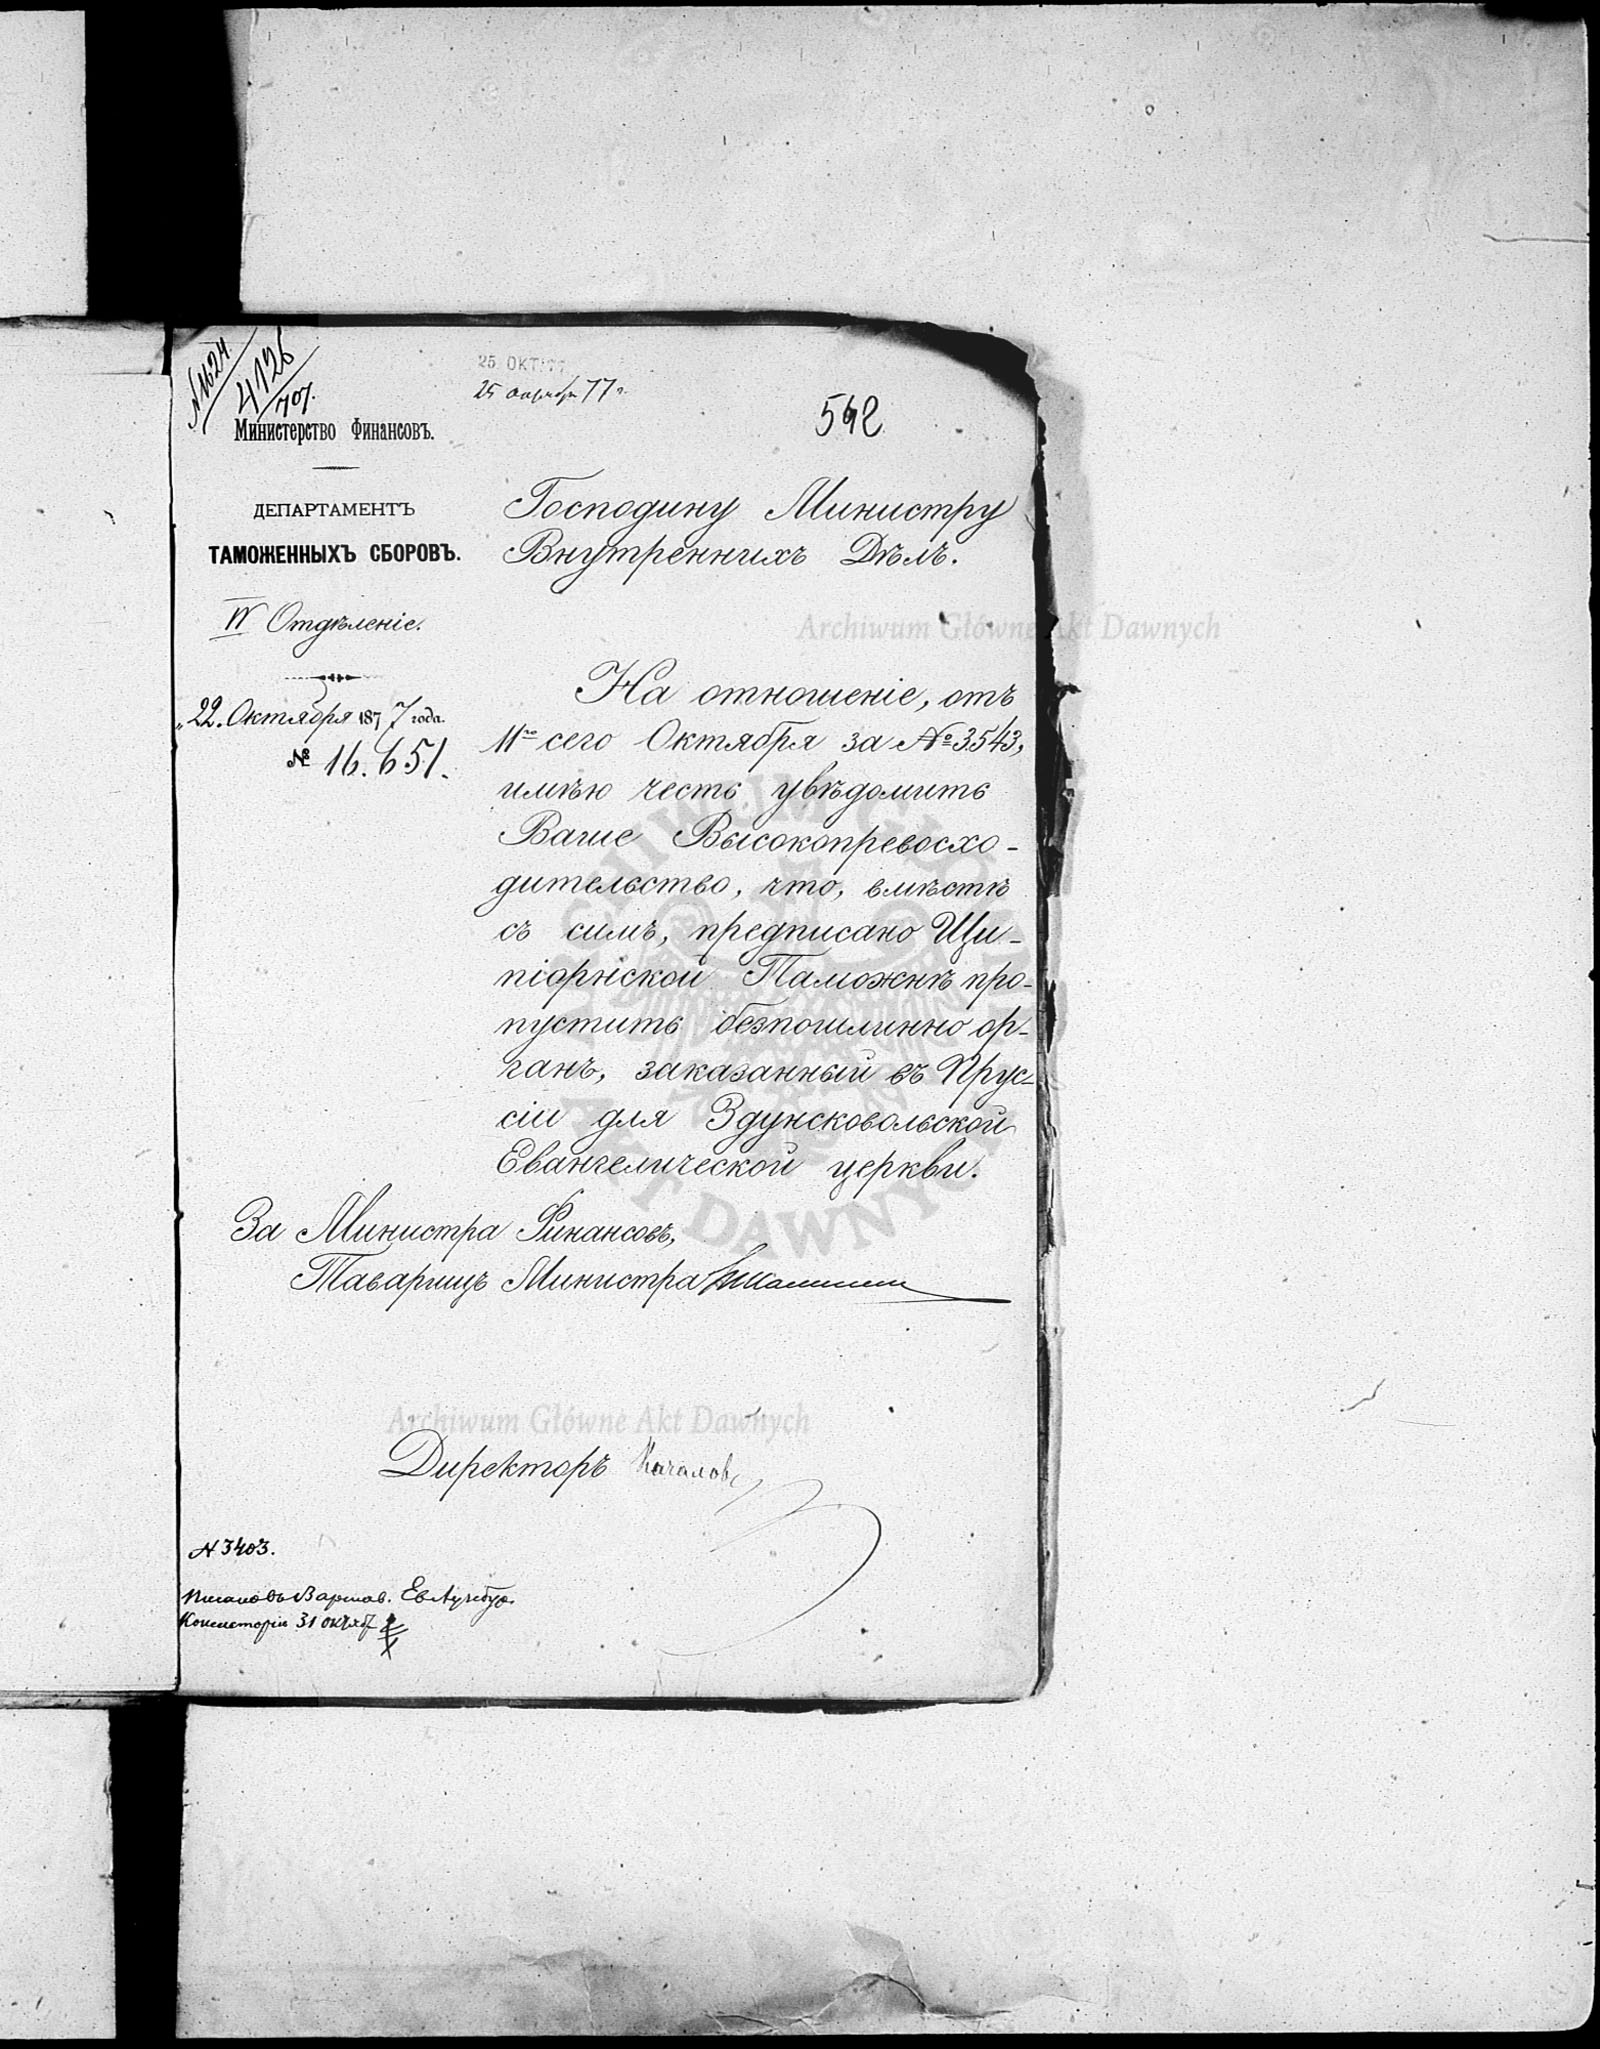 № 1624
4126
707.
25 ОКТ. 77
25 октября 77 г.
542
Министерство Финансовъ.
ДЕПАРТАМЕНТЪ
ТАМОЖЕННЫХЪ СБОРОВЪ.
IV Отдѣленіе.
„22. Октября 1877 года.
№ 16.651.
Господину Министру
Внутреннихъ Дѣлъ.
Archiwum Główne Akt Dawnych
На отношеніе, отъ
11го сего Октября за № 3543,
имѣю честь увѣдомить
Ваше Высокопревосхо-
дительство, что, вмѣстѣ
съ симъ, предписано Щи-
піорнской Таможнѣ про-
пустить безпошлинно ор-
ганъ, заказанный въ Прус-
сіи для Здунсковольской
Евангелической церкви.
ARCHIWUM GŁÓWNE AKT DAWNYCH
За Министра Финансовъ,
Товарищъ Министра
Archiwum Główne Akt Dawnych
Директоръ Качаловъ
№ 3403.
Варшав. Ев. Аугсбур.
Консисторіи 31 октяб.